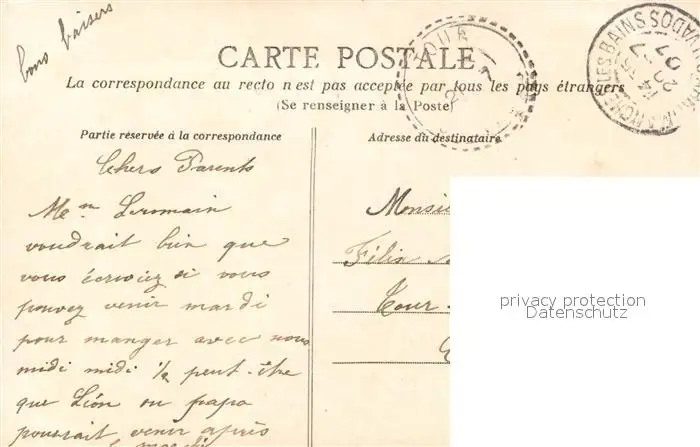 bons baisers
CARTE POSTALE
La correspondance au recto n'est pas acceptée par tous les pays étrangers
(Se renseigner à la Poste)
Partie réservée à la correspondance
Chers Parents
Me m Lermain
voudrait bien que
vous écriviez si vous
pouvez venir mardi
pour manger avec nous
midi midi ½ peut-être
que Léon ou papa
pourrait venir après
le marché
Adresse du destinataire
Monsie
Félix
Cour
privacy protection
Datenschutz
LES BAINS
VADOS
07